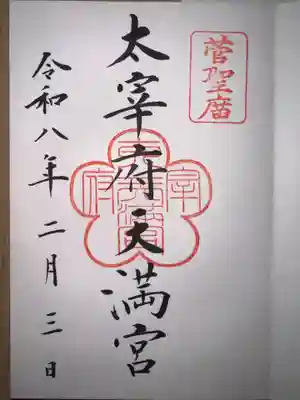 菅聖廟
太宰府天満宮
令和八年二月三日